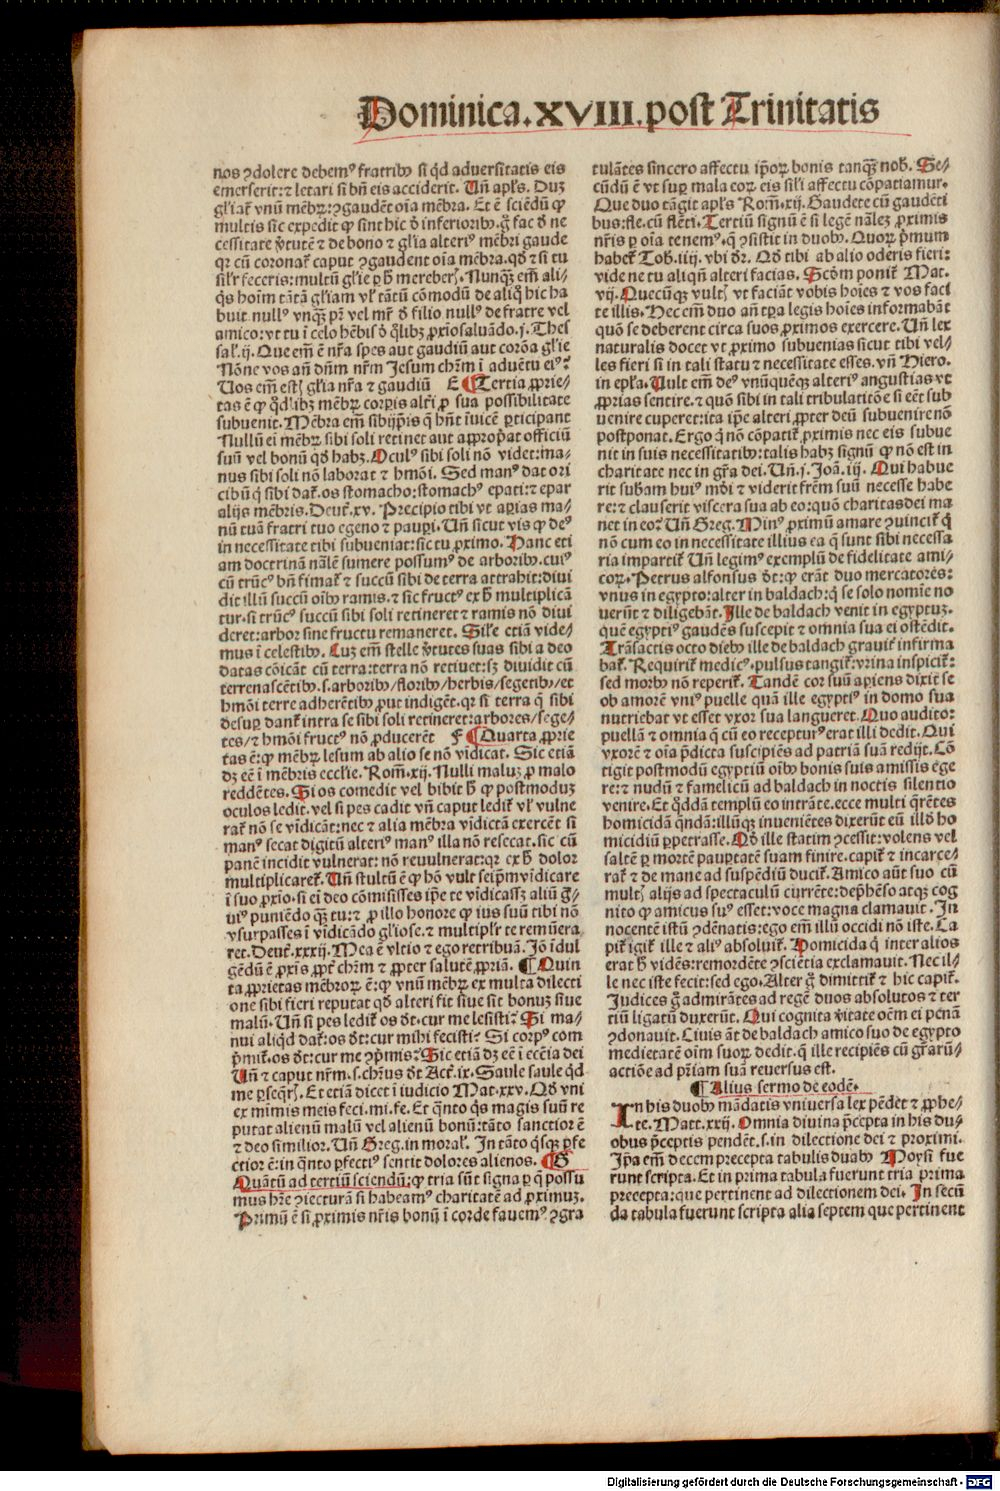 Dominica.XVIII.post Trinitatis
nos ⁊dolere debemꝰ fratribꝰ si qͥd aduersitatis eis
emerserit:⁊ letari si bñ eis acciderit. Uñ apl̃s. Duz
gl̃iat̃ vnũ mẽbꝝ:⁊gaudẽt oĩa mẽbra. Et ẽ sciẽdũ ꝙ
multis sic expedit ꝙ sint hic ĩ inferioribꝰ. g̃ fac ð ne
cessitate v̓tutẽ ⁊ de bono ⁊ gl̃ia alteriꝰ mẽbri gaude
qꝛ cũ coronat̃ caput ⁊gaudent oĩa mẽbra. qð ⁊ si tu
sil̃r feceris:multũ gl̃ie ꝑ ħ mereberꝭ. Nunqͣꝫ em̃ ali/
qͥs hoĩm tãtã gl̃iam vl̓ tãtũ cõmodũ de aliqͦ hic ha
buit nullꝰ vnqͣꝫ pr̃ vel mr̃ ð filio nullꝰ de fratre vel
amico:vt tu ĩ celo hẽbis ð qͦlibꝫ ꝓxĩo saluãdo.j. Thes
sal̓.ij. Que em̃ ẽ nr̃a spes aut gaudiũ aut corõa gl̃ie
Nõne vos añ dñm nr̃m Jesum chr̃m ĩ aduẽtu eiꝰ?
Uos em̃ estꝭ gl̃ia nr̃a ⁊ gaudiũ E ¶Tertia ꝓprie/
tas ẽ ꝙ qͦdlibꝫ mẽbꝝ corꝑis alt̓i ꝓ sua possibilitate
subuenit. Mẽbra em̃ sibijp̃is qͥ hñt ĩuicẽ ꝑticipant
Nullũ ei mẽbꝝ sibi soli retinet aut apꝓp̓at officiũ
suũ vel bonũ qð habꝫ. Oculꝰ sibi soli nõ videt:ma/
nus sibi soli nõ laborat ⁊ hmõi. Sed manꝰ dat ori
cibũ qͥ sibi dat̃. os stomacho:stomachꝰ epati:⁊ epar
alijs mẽbris. Deut̃.xv. Precipio tibi vt aꝑias ma/
nũ tuã fratri tuo egeno ⁊ pauꝑi. Uñ sicut vis ꝙ deꝰ
in necessitate tibi subueniat:sic tu ꝓximo. Hanc eti
am doctrinã nãlẽ sumere possumꝰ de arboribꝰ.cuiꝰ
cũ trũcꝰ bñ fimat̃ ⁊ succũ sibi de terra attrahit:diui
dit illũ succũ oĩbꝰ ramis.⁊ sic fructꝰ ex ħ multiplicã
tur.si trũcꝰ succũ sibi soli retineret ⁊ ramis nõ diui
deret:arboꝛ sine fructu remaneret. Sil̃e etiã vide/
mus ĩ celestibꝰ. Cuꝫ em̃ stelle v̓tutes suas sibi a deo
datas cõicãt cũ terra:terra nõ retinet:sꝫ diuidit cũ
terrenascẽtibꝰ.s.arboribꝰ/floribꝰ/herbis/segetibꝰ/et
hmõi terre adherẽtibꝰ ꝓut indigẽt.qꝛ si terra qͥ sibi
desuꝑ dant̃ intra se sibi soli retineret:arbores/sege/
tes/⁊ hmõi fructꝰ nõ ꝓducerẽt F ¶Quarta ꝓprie
tas ẽ:ꝙ mẽbꝝ lesum ab alio se nõ vidicat. Sic etiã
dꝫ eẽ ĩ mẽbris eccl̃ie. Rom̃.xij. Nulli maluꝫ ꝓ malo
reddẽtes. Si os comedit vel bibit ħ ꝙ postmoduꝫ
oculos ledit.vel si pes cadit vñ caput ledit̃ vl̓ vulne
rat̃ nõ se vĩdicãt:nec ⁊ alia mẽbra vidictã exercẽt si
manꝰ secat digitũ alteriꝰ manꝰ illa nõ resecat.sic cũ
panẽ incidit vulnerat: nõ reuulnerat:qꝛ ex ħ dolor
multiplicaret̃. Uñ stultũ ẽ ꝙ hõ vult seip̃m vĩdicare
ĩ suo ꝓxĩo.si ei deo cõmisisses ip̃e te vĩdicassꝫ aliũ g̃/
uiꝰ puniẽdo qͣꝫ tu:⁊ ꝓ illo honore ꝙ ius suũ tibi nõ
vsurpasses ĩ vĩdicãdo gl̃iose.⁊ multipl̓r te remũera
ret. Deut̃.xxxij. Mea ẽ vltio ⁊ ego retribuã. Jõ ĩdul
gẽdũ ẽ ꝓxĩs ꝓpt̓ chr̃m ⁊ ꝓpter salutẽ ꝓpriã. ¶Quin
ta ꝓprietas mẽbroꝝ ẽ:ꝙ vnũ mẽbꝝ ex multa dilecti
one sibi fieri reputat qð alteri fit siue sit bonuꝫ siue
malũ. Uñ si pes ledit̃ os dt̃.cur me lesisti? Si ma/
nui aliqͥd dat̃:os dt̃:cur mihi fecisti? Si corpꝰ com
p̓mit̃.os dt̃:cur me ⁊p̓mis? Sic etiã dꝫ eẽ ĩ ecc̃ia dei
Uñ ⁊ caput nr̃m.s.chr̃us dt̃ Act̃.ix. Saule saule qͥd
me ꝑseqͥrꝭ. Et etiã dicet ĩ iudicio Mat.xxv. Qð vni
ex mĩmis meis feci.mi.fe. Et qͣnto qͥs magis suũ re
putat alienũ malũ vel alienũ bonũ:tãto sanctior ẽ
⁊ deo similior. Uñ Greg.in moral̓. In tãto qͥsqꝫ ꝑfe
ctior ẽ:in qͣnto ꝑfectiꝰ sentit dolores alienos. ¶G
Quãtũ ad tertiũ sciendũ:ꝙ tria sũt signa ꝑ qͥ possu
mus hr̃e ⁊iecturã si habeamꝰ charitatẽ ad ꝓximuꝫ.
Primũ ẽ si ꝓximis nr̃is bonũ ĩ corde fauemꝰ ⁊gra
tulãtes sincero affectu ip̃oꝝ bonis tanqͣꝫ nob̓. Se/
cũdũ ẽ vt suꝑ mala eoꝝ eis sil̓i affectu cõpatiamur.
Que duo tãgit apl̃s Rom̃.xij. Gaudete cũ gaudẽti
bus:fle.cũ flẽti. Tertiũ signũ ẽ si legẽ nãleꝫ ꝓximis
nr̃is ꝑ oĩa tenemꝰ.qͥ ⁊sistit in duobꝰ. Quoꝝ p̓mum
habet̃ Tob.iiij. vbi dr̃. Qð tibi ab alio oderis fieri:
vide ne tu aliqñ alteri facias. Scðm ponit̃ Mat.
vij. Quecũqꝫ vultꝭ vt faciãt vobis hoĩes ⁊ vos faci
te illis. Nec em̃ duo añ tꝑa legis hoĩes informabãt
quõ se deberent circa suos ꝓximos exercere. Uñ lex
naturalis docet vt ꝓximo subuenias sicut tibi vel/
les fieri si in tali statu ⁊ necessitate esses. vñ Hiero.
in epl̃a. Uult em̃ deꝰ vnũquẽqꝫ alteriꝰ angustias vt
ꝓprias sentire.⁊ quõ sibi in tali tribulatiõe si eẽt sub
uenire cuperet:ita ip̃e alteri ꝓpter deũ subuenire nõ
postponat. Ergo qͥ nõ cõpatit̃ ꝓximis nec eis subue
nit in suis necessitatibꝰ:talis habꝫ signũ ꝙ nõ est in
charitate nec in gr̃a dei. Uñ.j. Joã.iij. Qui habue
rit sub̃am huiꝰ mũdi ⁊ viderit fr̃em suũ necesse habe
re:⁊ clauserit viscera sua ab eo:quõ charitas dei ma
net in eo? Uñ Greg. Minꝰ ꝓximũ amare ⁊uincit̃ qͥ
nõ cum eo in necessitate illius ea qͥ sunt sibi necessa
ria impartit̃ Uñ legimꝰ exemplũ de fidelitate ami/
coꝝ. Petrus alfonsus dt̃:ꝙ erãt duo mercatores:
vnus in egypto:alter in baldach:qͥ se solo nomĩe no
uerũt ⁊ diligebãt. Ille de baldach venit in egyptuꝫ.
quẽ egyptiꝰ gaudẽs suscepit ⁊ omnia sua ei ostẽdit.
Trãsactis octo diebꝰ ille de baldach grauit̓ infirma
bat̃. Requirit̃ medicꝰ.pulsus tangit̃:vrina inspicit̃:
sed morbꝰ nõ reperit̃. Tandẽ cor suũ aꝑiens dixit se
ob amorẽ vniꝰ puelle quã ille egyptiꝰ in domo sua
nutriebat vt esset vxor sua langueret. Quo audito:
puellã ⁊ omnia qͥ cũ eo recepturꝰ erat illi dedit. Qui
vxorẽ ⁊ oĩa p̃dicta suscipiẽs ad patriã suã redijt. Cõ
tigit postmodũ egyptiũ oĩbꝰ bonis suis amissis ege
re:⁊ nudũ ⁊ famelicũ ad baldach in noctis silentio
venire. Et qͦddã templũ eo intrãte.ecce multi qͥrẽtes
homicidã qͥndã:illũqꝫ inueniẽtes dixerũt eũ illð ho
micidiũ ꝑpetrasse. Qð ille statim ⁊cessit:volens vel
saltẽ ꝑ mortẽ pauꝑtatẽ suam finire.capit̃ ⁊ incarce/
rat̃ ⁊ de mane ad suspẽdiũ ducit̃. Amico aũt suo cũ
multꝭ alijs ad spectaculũ currẽte:dep̃hẽso atqꝫ cog
nito ꝙ amicus suꝰ esset:voce magna clamauit. In
nocentẽ istũ ⁊dẽnatis:ego em̃ illũ occidi nõ iste. Ca
pit̃ igit̃ ille ⁊ aliꝰ absoluit̃. Homicida qͥ inter alios
erat ħ vidẽs:remordẽte ⁊sciẽtia exclamauit. Nec il/
le nec iste fecit:sed ego. Alter g̃ dimittit̃ ⁊ hic capit̃.
Judices g̃ admirãtes ad regẽ duos absolutos ⁊ ter
tiũ ligatũ duxerũt. Qui cognita v̓itate oẽm ei penã
⁊donauit. Ciuis aũt de baldach amico suo de egypto
medietatẽ oĩm suoꝝ dedit.qͥ ille recipiẽs cũ gr̃arũ/
actiõe ad pr̃iam suã reuersus est.
¶Alius sermo de eodẽ.
In his duobꝰ mãdatis vniuersa lex pẽdet ⁊ ꝓphe/
te. Matt.xxij. Omnia diuina p̃cepta in his du/
obus p̃ceptis pendẽt.s.in dilectione dei ⁊ proximi.
Ip̃a em̃ decem precepta tabulis duabꝰ Moysi fue
runt scripta. Et in prima tabula fuerunt tria prima
precepta:que pertinent ad dilectionem dei. In secũ
da tabula fuerunt scripta alia septem que pertinent
Digitalisierung gefördert durch die Deutsche Forschungsgemeinschaft - DFG